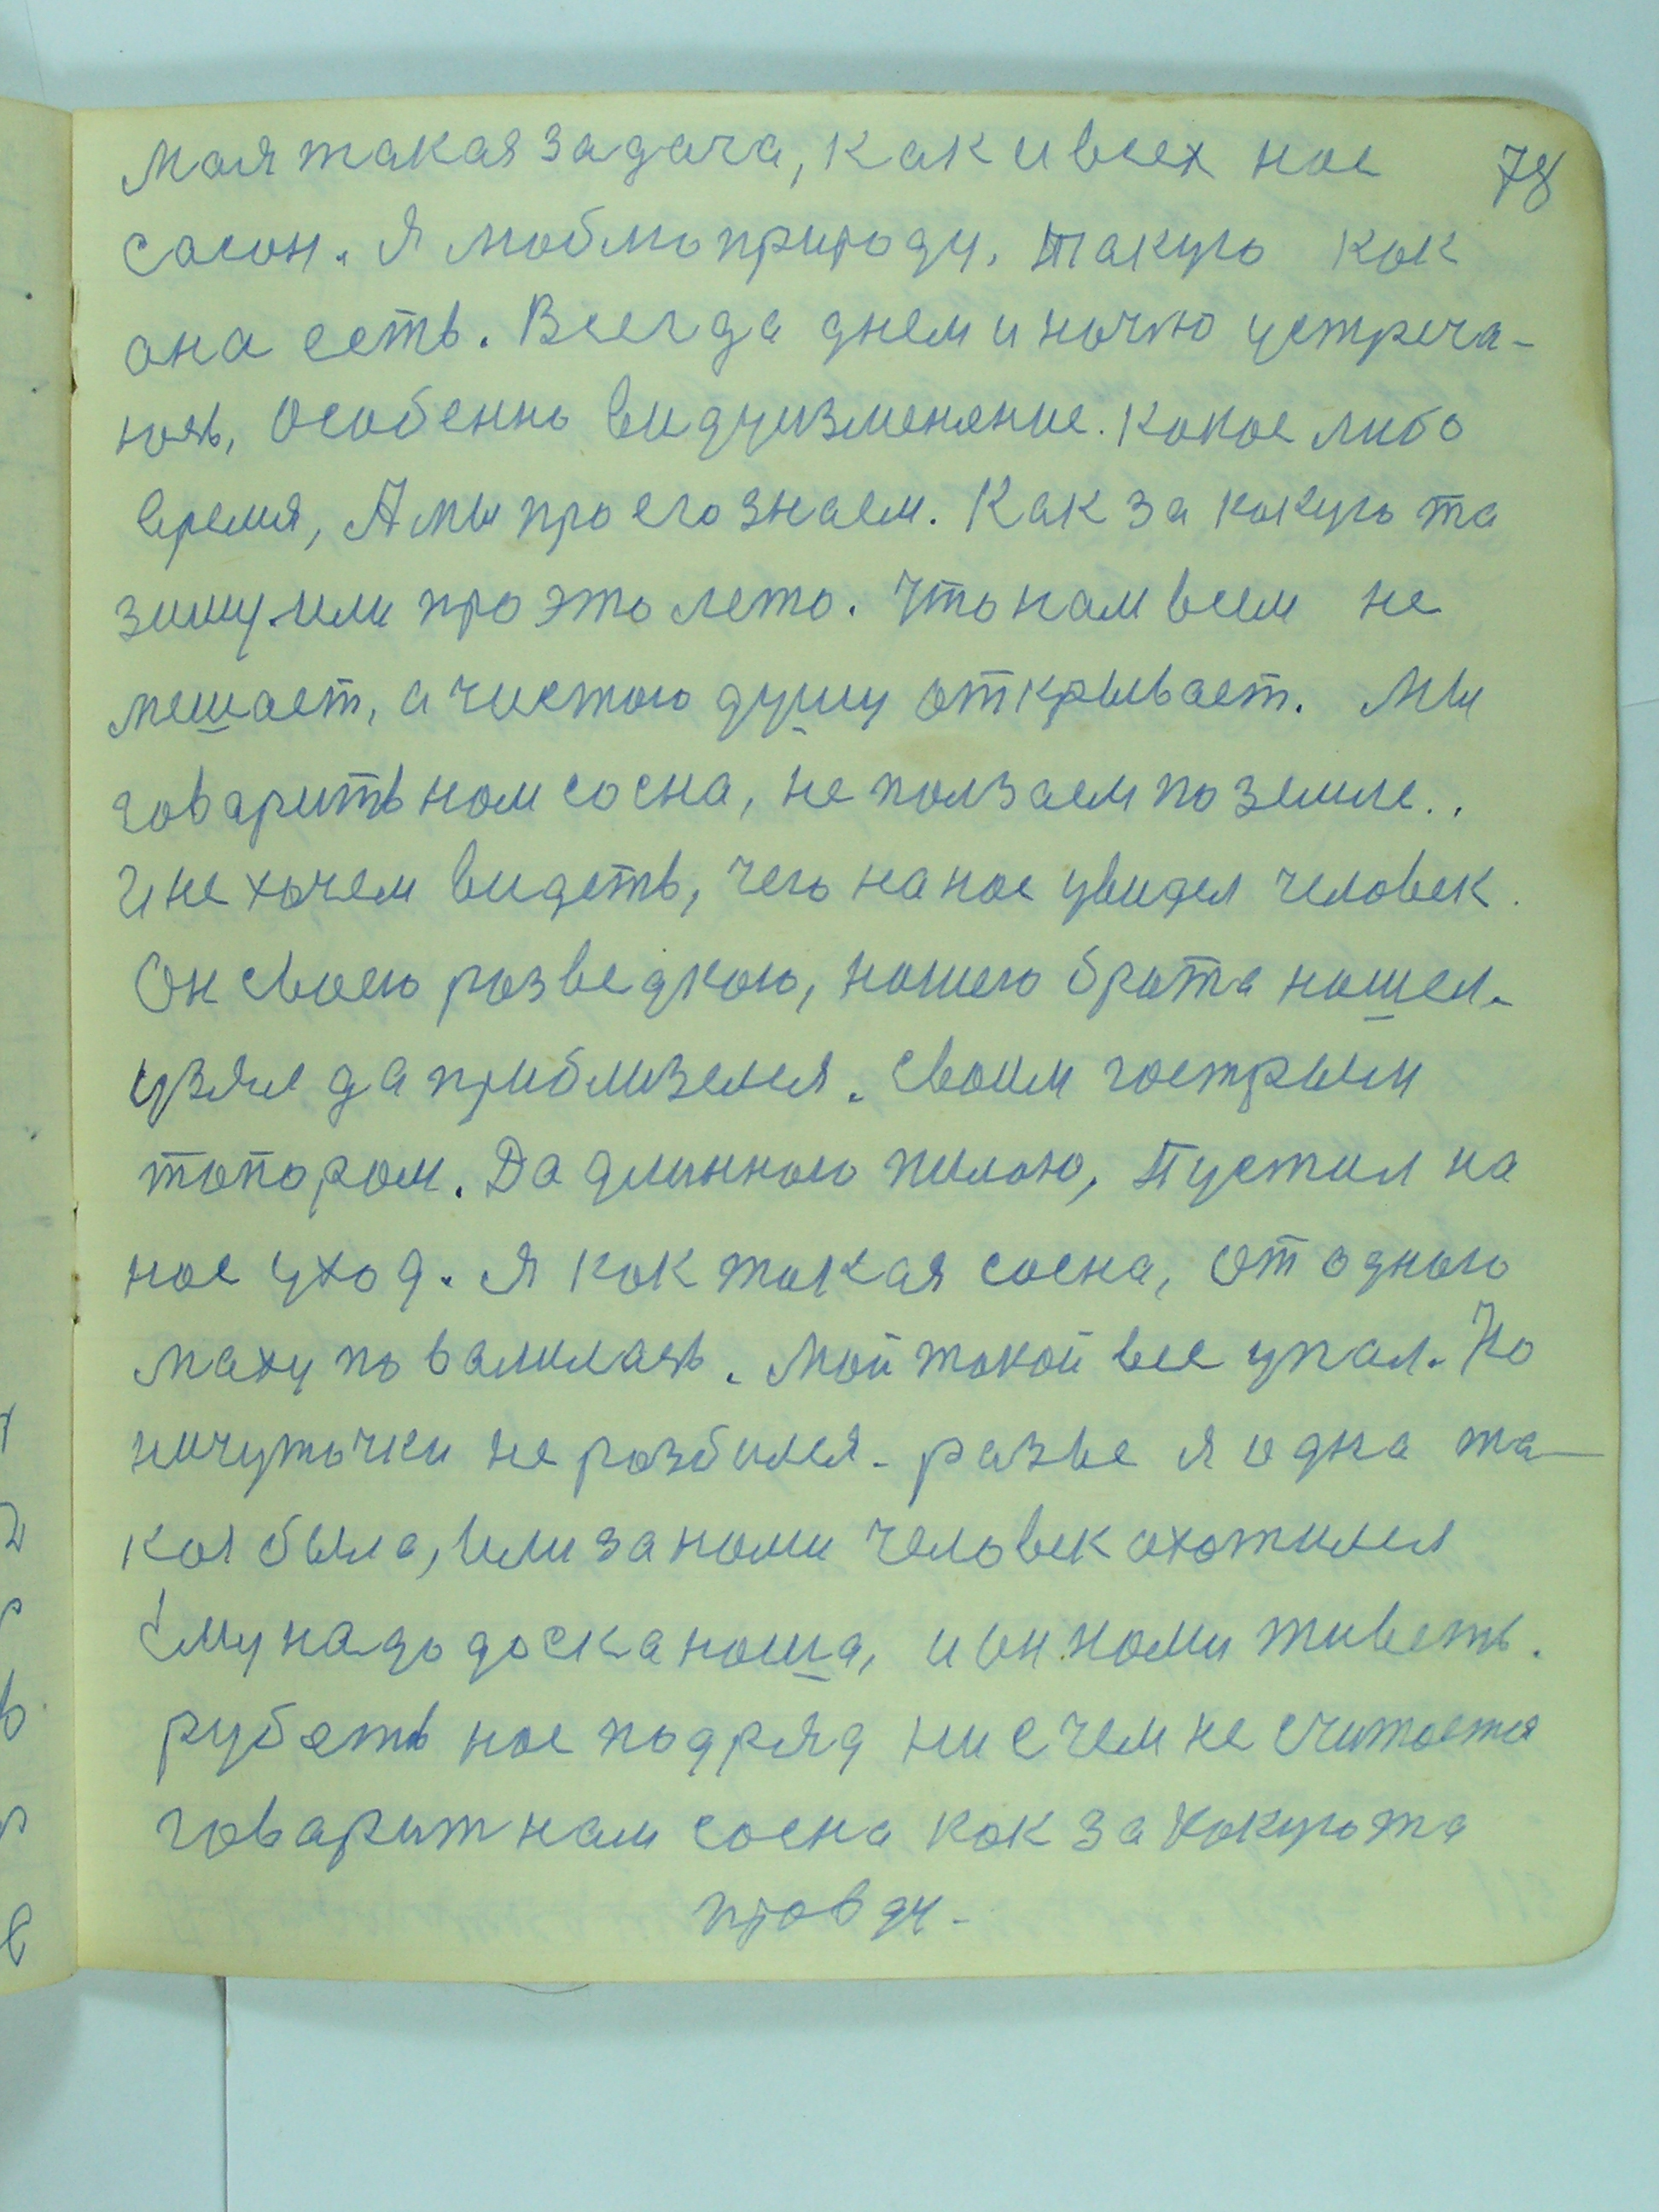 Моя такая задача, как и всех нас 78
сасон. Я люблю природу. такую как
она есть. Всегда днем и ночю устреча-
юсь, Особенно видуизменяние. какое либо
время, А мы про его знаем. Как за какую та
зиму. или про это лето. Что нам всем не
мешает, а чистою душу открывает. Мы
говарить нам сосна, не ползаем по земле..
И не хочем видеть, чего на нас увидел человек.
Он своею розведкою, нашего брата нашел.
узял да приблизелся. своим гострым
топором. Да длинною пилою, Пустил на
нас уход. Я как такая сосна, от одного
маху повалилась. Мой такой вес упал. Но
ничуточки не розбился. разве я одна та-
кая была, или за нами человек охотился
Ему надо доска наша, и он нами живеть.
рубать нас подряд ни с чем не считается
говарит нам сосна как за какую та
правду.